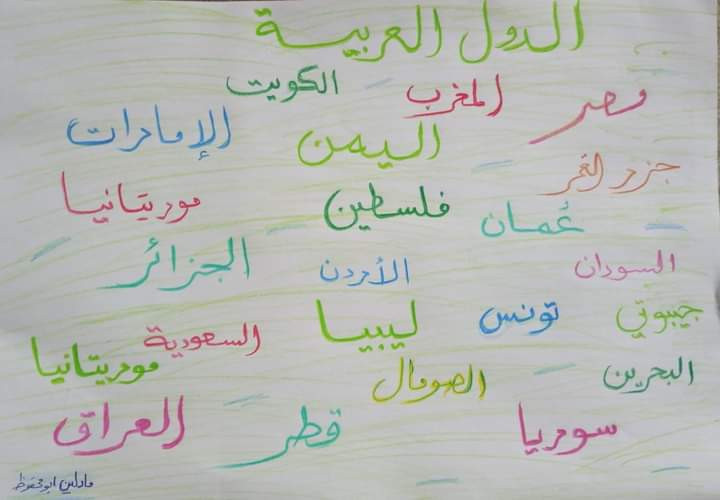 الدول العربية
الكويت
المغرب
مصر
الإمارات
اليمن
جزر القمر
موريتانيا
فلسطين
عُمان
الجزائر
الأردن
السودان
السعودية
ليبيا
تونس
جيبوتي
موريتانيا
الصومال
البحرين
العراق
قطر
سوريا
مادلين ابو محفوظ